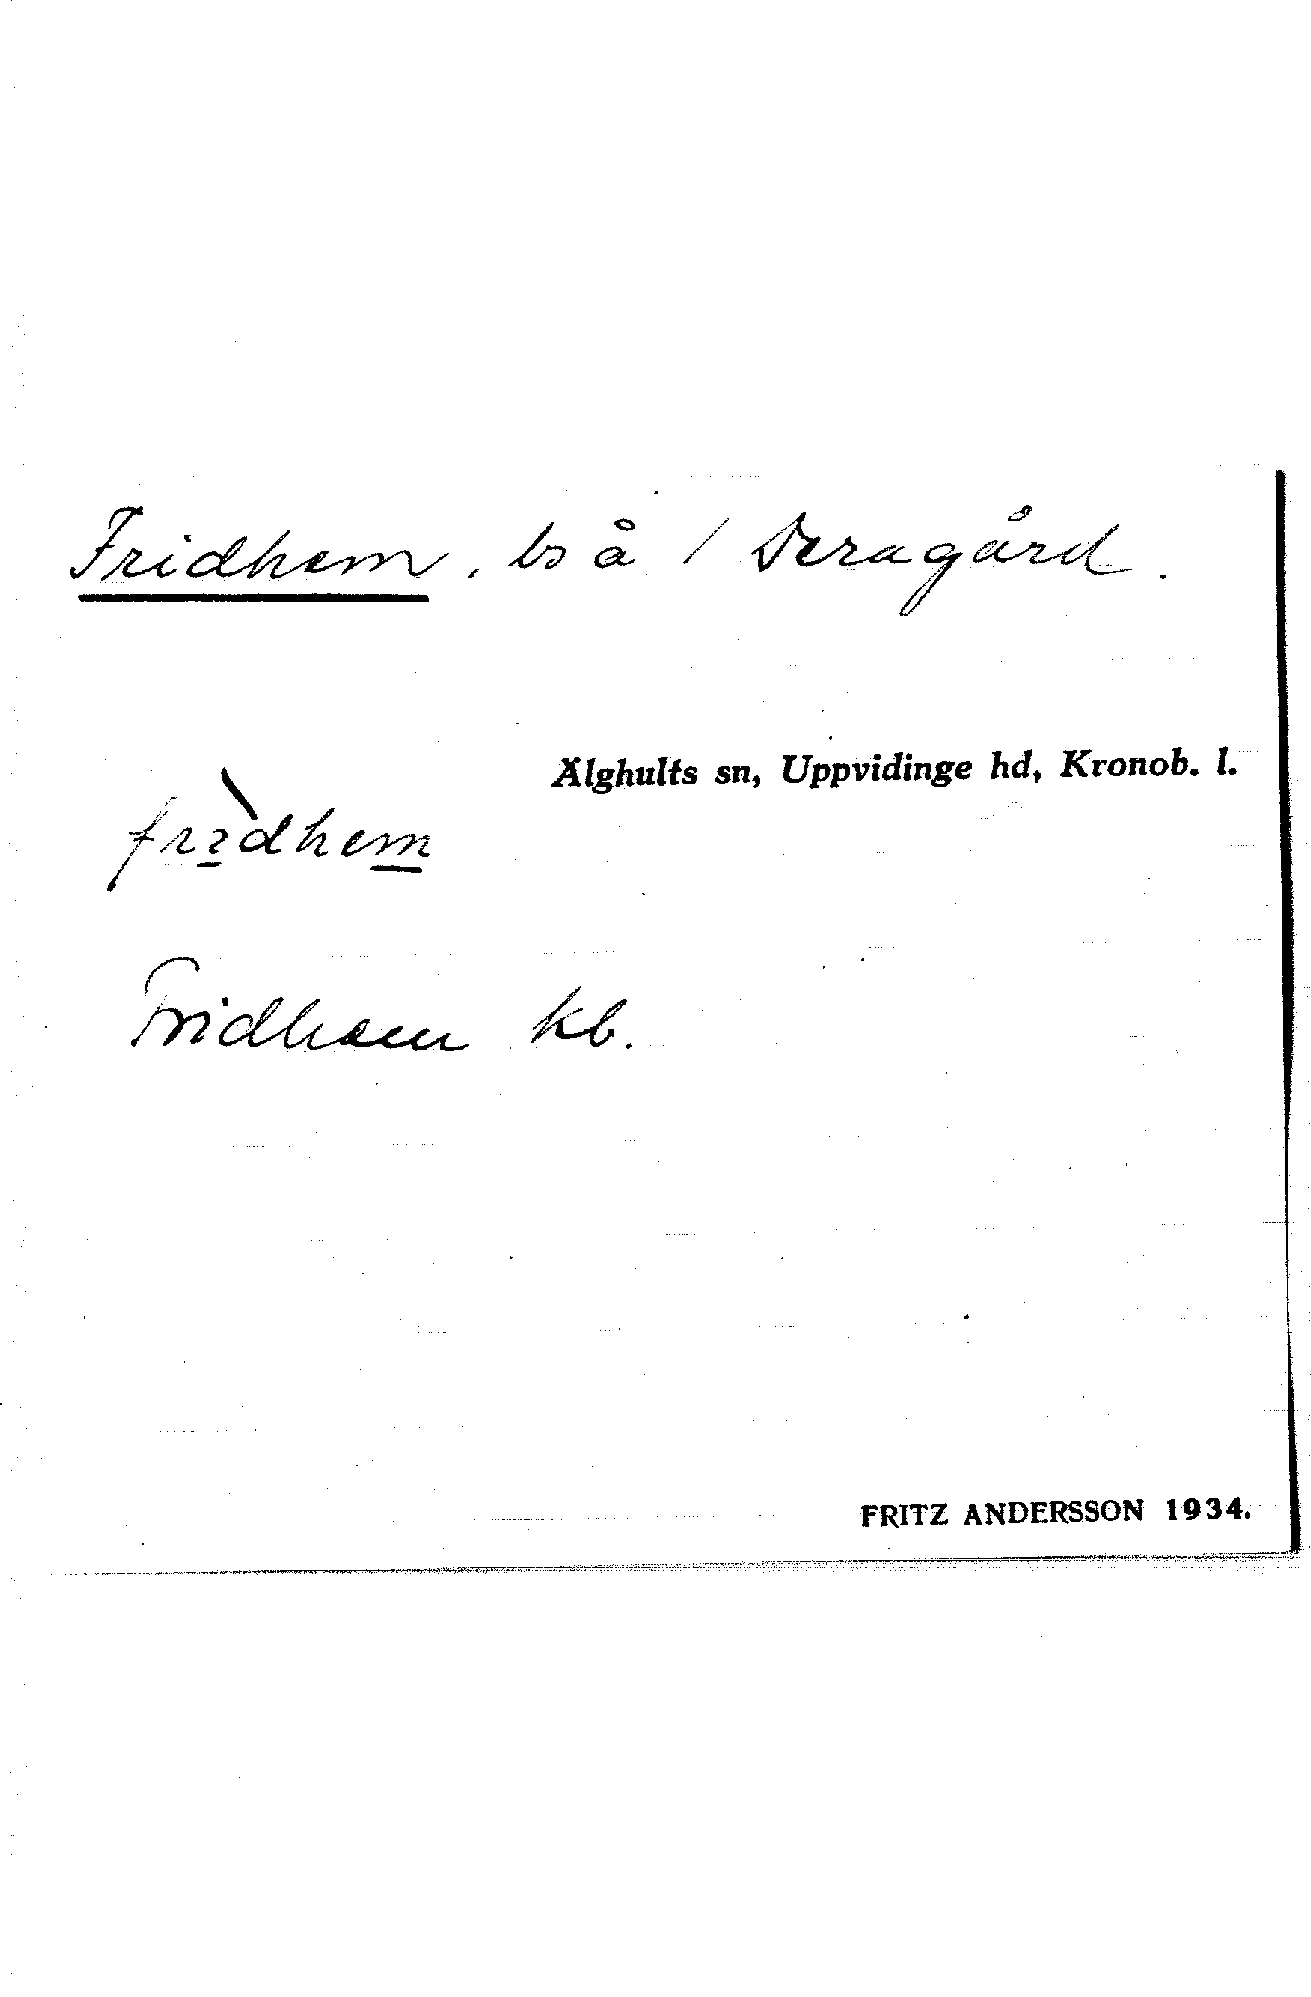 Fridhem, ls å 1 Deragård.
Älghults sn, Uppvidinge hd, Kronob. l.
fridhem
Fridhem kb.
FRITZ ANDERSSON 1934.